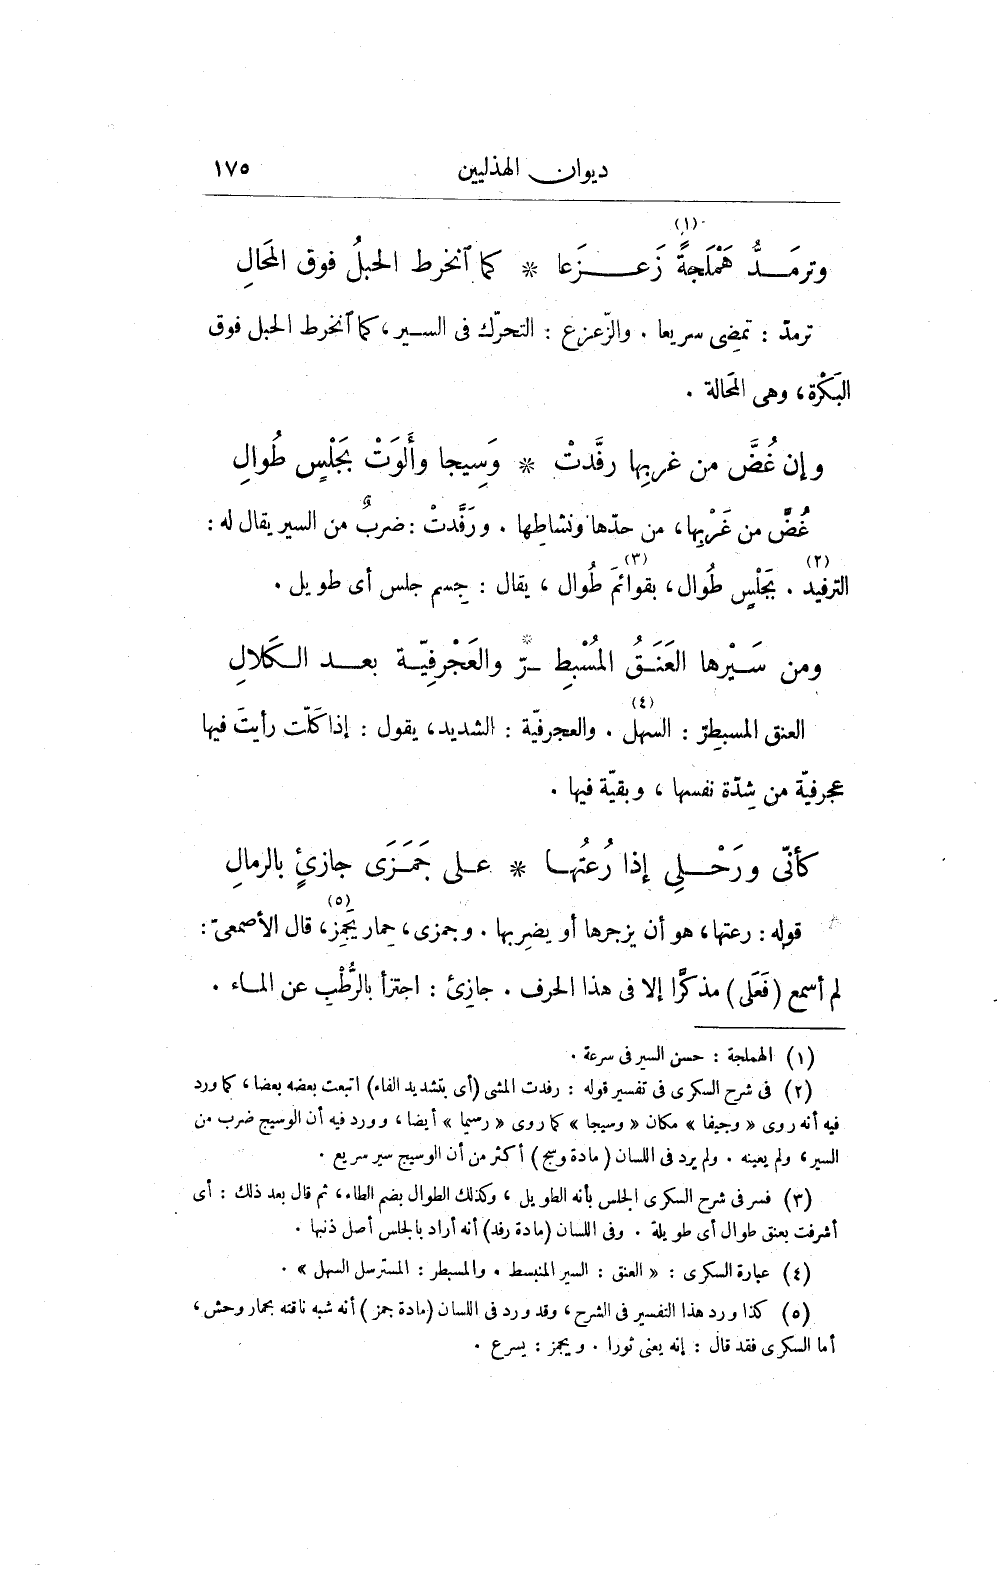 ديوان الهذليين ١٧٥
(١)
وترمَـدُّ هَمْلَجةً زَعـزَعا * كما ٱنخرط الحبلُ فوق المَحالِ
ترمدّ : تمضِى سريعا . والزّعزع : التحرّك فى السير، كما ٱنخرط الحبل فوق
البَكْرة، وهى المَحالة .
وإن غُضَّ من غربِها رفَّدتْ * وَسِيجا وأَلْوَتْ بجَلْسٍ طُوالِ
غُضَّ من غَرْبِها، من حدّها ونشاطها . ورَفَّدتْ : ضربٌ من السير يقال له :
(٢) (٣)
الترفيد . بجَلْسٍ طُوال، بقوائمَ طُوال، يقال : جِسم جلس أى طويل .
ومن سَـيْرها العَنَـقُ المُسْبِطـ * ـرّ والعَجْرفِيّـة بعـد الكَلالِ
(٤)
العنق المسبطرّ : السهل . والعجرفيّة : الشديد، يقول : إذا كَلّت رأيتَ فيها
عجرفيّة من شِدّة نفسها، وبقيّة فيها .
كأنّى ورَحْـلِى إذا رُعتُهـا * عـلى جَمَـزَى جازئٍ بالرمالِ
(٥)
قوله : رعتها، هو أن يزجرها أو يضربها . وجمزى، حمار يَجمِز، قال الأصمعىّ :
لم أسمع (فَعَلَى) مذكَّرا إلا فى هذا الحرف . جازئ : اجتزأ بالرُّطْب عن المـاء .
(١) الهملجة : حسن السير فى سرعة .
(٢) فى شرح السكرى فى تفسير قوله : رفدت المشى (أى بتشديد الفاء) اتبعت بعضه بعضا، كما ورد
فيه أنه روى « وجيفا » مكان « وسيجا » كما روى « رسيما » أيضا، وورد فيه أن الوسيج ضرب من
السير، ولم يعينه . ولم يرد فى اللسان (مادة وسج) أكثر من أن الوسيج سير سريع .
(٣) فسر فى شرح السكرى الجلس بأنه الطويل، وكذلك الطوال بضم الطاء، ثم قال بعد ذلك : أى
أشرفت بعنق طوال أى طويلة . وفى اللسان (مادة رفد) أنه أراد بالجلس أصل ذنبها .
(٤) عبارة السكرى : « العنق : السير المنبسط . والمسبطر : المسترسل السهل » .
(٥) كذا ورد هذا التفسير فى الشرح، وقد ورد فى اللسان (مادة جمز) أنه شبه ناقته بحمار وحش،
أما السكرى فقد قال : إنه يعنى ثورا . ويجمز : يسرع .